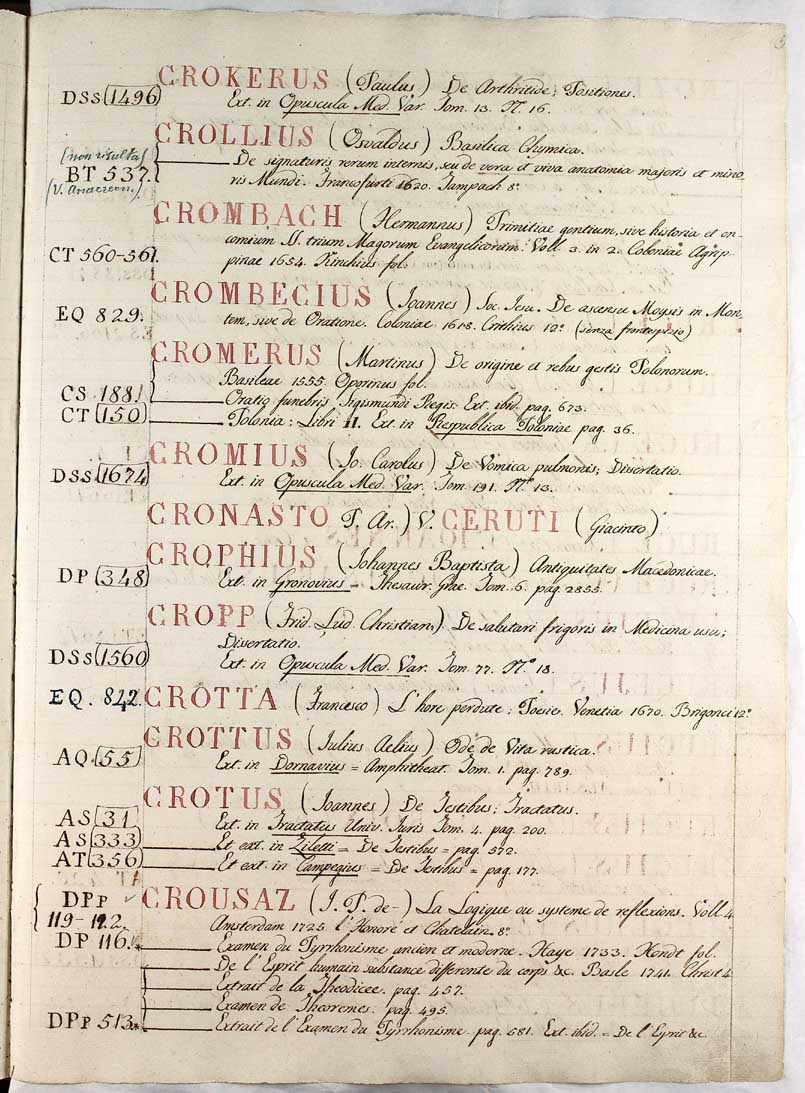 5
CROKERUS (Paulus) De Arthritide; Positiones.
DSs 1496 Ext. in Opuscula Med. Var. Tom. 13. N.° 16.
CROLLIUS (Osvaldus) Basilica Chymica.
(non risulta) ——— De signaturis rerum internis, seu de vera et viva anatomia majoris et mino-
BT 537. ris Mundi. Francofurti 1620. Tampach 8.°
(V. Anacreon.)
CROMBACH (Hermannus) Primitiae gentium, sive historia et en-
comium SS. trium Magorum Evangelicorum. Voll. 3. in 2. Coloniae Agrip-
CT 560-561. pinae 1654. Kinchius fol.
CROMBECIUS (Ioannes) Soc. Iesu. De ascensu Moysis in Mon-
EQ 829. tem, sive de Oratione. Coloniae 1618. Crithius 12.° (senza frontespizio)
CROMERUS (Martinus) De origine et rebus gestis Polonorum.
Basileae 1555. Oporinus fol.
CS 1881 ——— Oratio funebris Sigismundi Regis. Ext. ibid. pag. 673.
CT 150 ——— Polonia; Libri II. Ext. in Respublica Poloniae pag. 36.
CROMIUS (Io. Carolus) De Vomica pulmonis; Dissertatio.
DSs 1674 Ext. in Opuscula Med. Var. Tom. 191. N.° 13.
CRONASTO P. Ar.) V. CERUTI (Giacinto)
CROPHIUS (Johannes Baptista) Antiquitates Macedonicae.
DP 348 Ext. in Gronovius = Thesaur. Grae. Tom. 6. pag. 2855.
CROPP (Frid. Lud. Christian.) De salutari frigoris in Medicina usu;
Dissertatio.
DSs 1560 Ext. in Opuscula Med. Var. Tom. 77. N.° 18.
EQ. 842. CROTTA (Francesco) L'hore perdute; Poesie. Venetia 1670. Brigonci 12.°
CROTTUS (Julius Aelius) Odé de Vita rustica.
AQ 55 Ext. in Dornavius = Amphitheat. Tom. 1. pag. 789.
CROTUS (Ioannes) De Testibus; Tractatus.
AS 31 Ext. in Tractatus Univ. Juris Tom. 4. pag. 200.
AS 333 ——— Et ext. in Ziletti = De Testibus = pag. 572.
AT 356 ——— Et ext. in Campegius = De Testibus = pag. 177.
DPp CROUSAZ (I. P. de-) La Logique ou systeme de reflexions. Voll. 4
119-122. Amsterdam 1725. l'Honoré et Chatelain. 8.°
DP 116. ——— Examen du Pyrrhonisme ancien et moderne. Haye 1733. Hondt fol.
——— De l'Esprit humain substance differente du corps &c. Basle 1741. Christ 4
——— Extrait de la Theodicee. pag. 457.
——— Examen de Theoremes. pag. 495.
DPp 513. ——— Extrait de l'Examen du Pyrrhonisme. pag. 581. Ext. ibid. = De l'Esprit &c